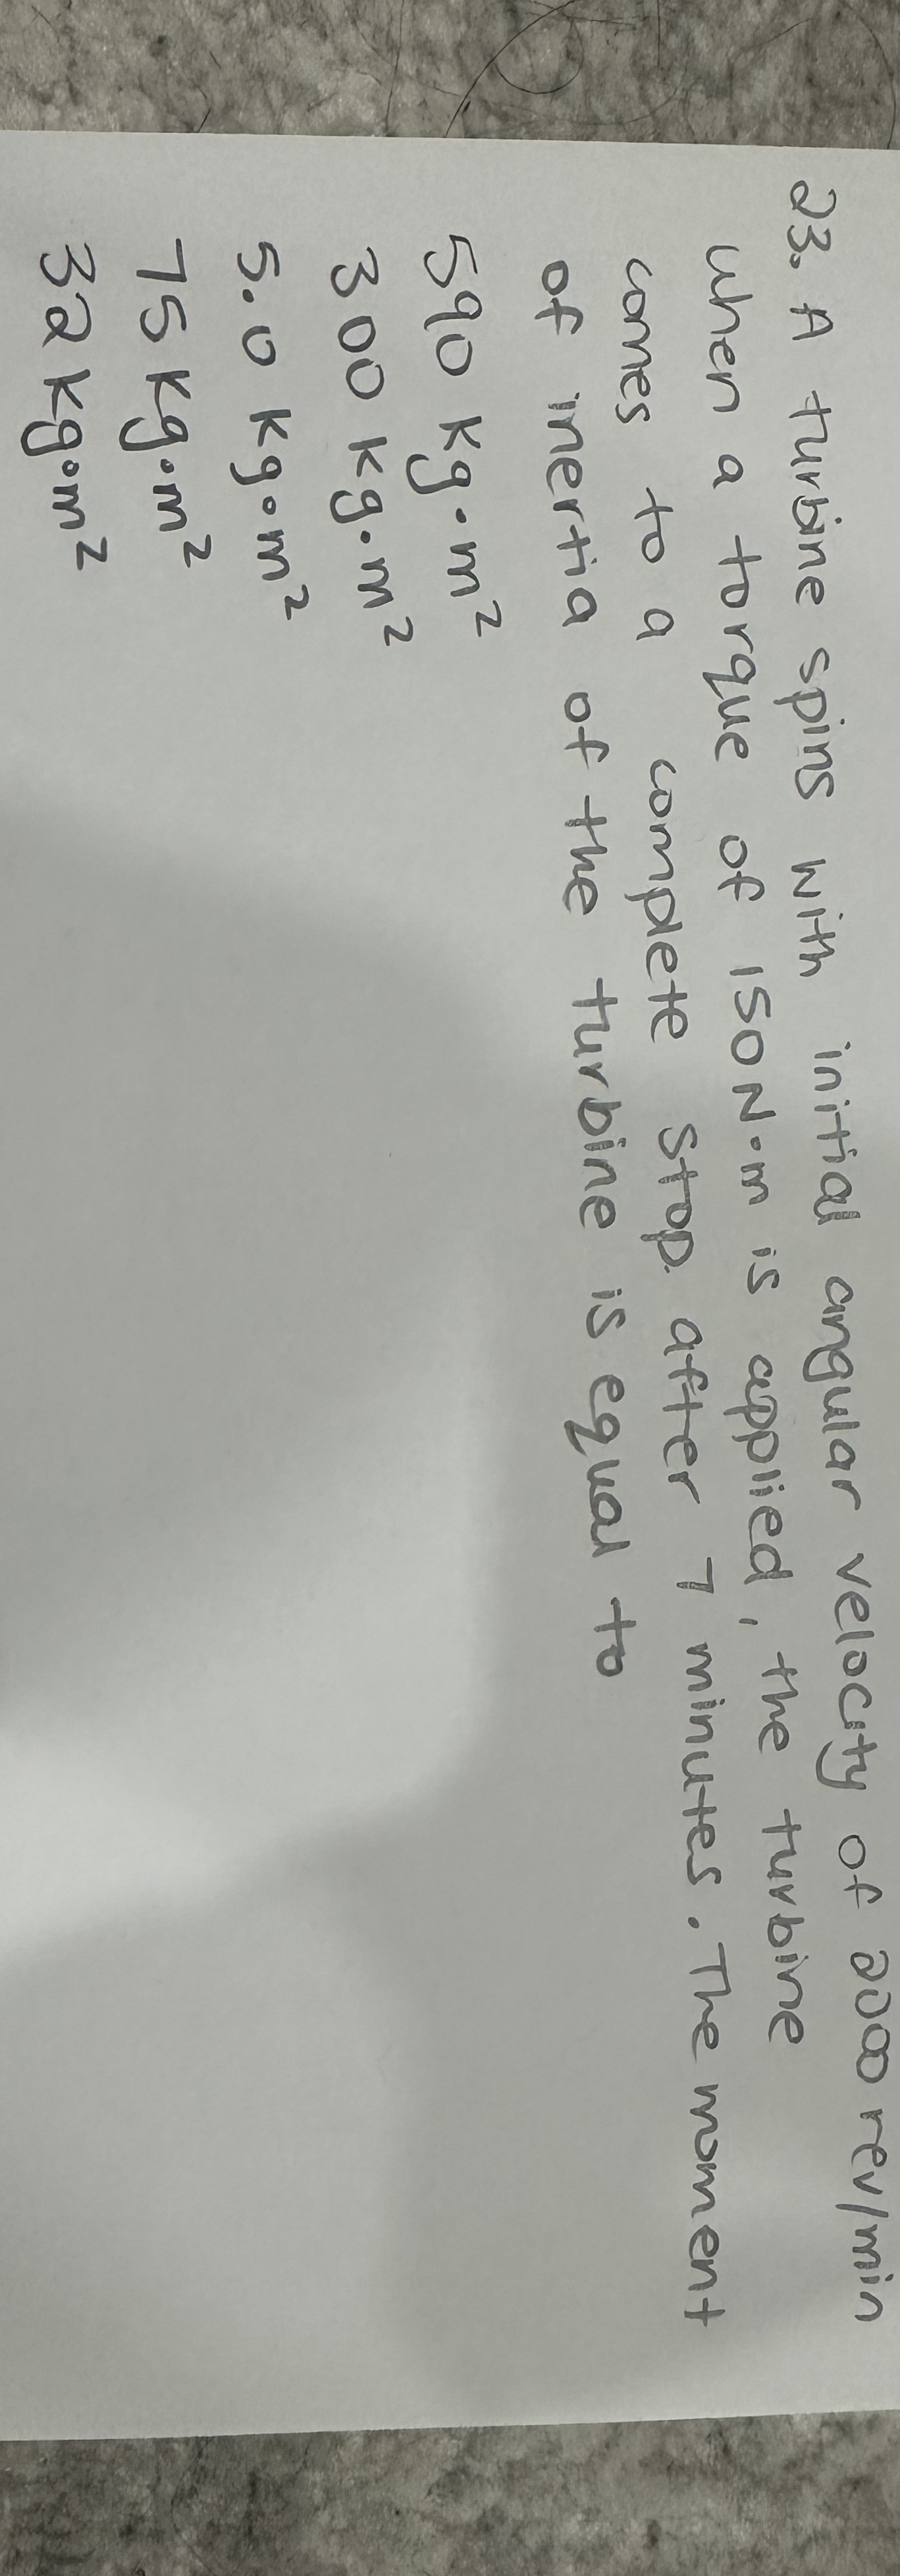 23. A turbine spins with initial angular velocity of 2000 rev/min
when a torque of 150 N·m is applied, the turbine
comes to a complete stop after 7 minutes. The moment
of inertia of the turbine is equal to
590 kg·m²
300 kg·m²
5.0 kg·m²
75 kg·m²
32 kg·m²